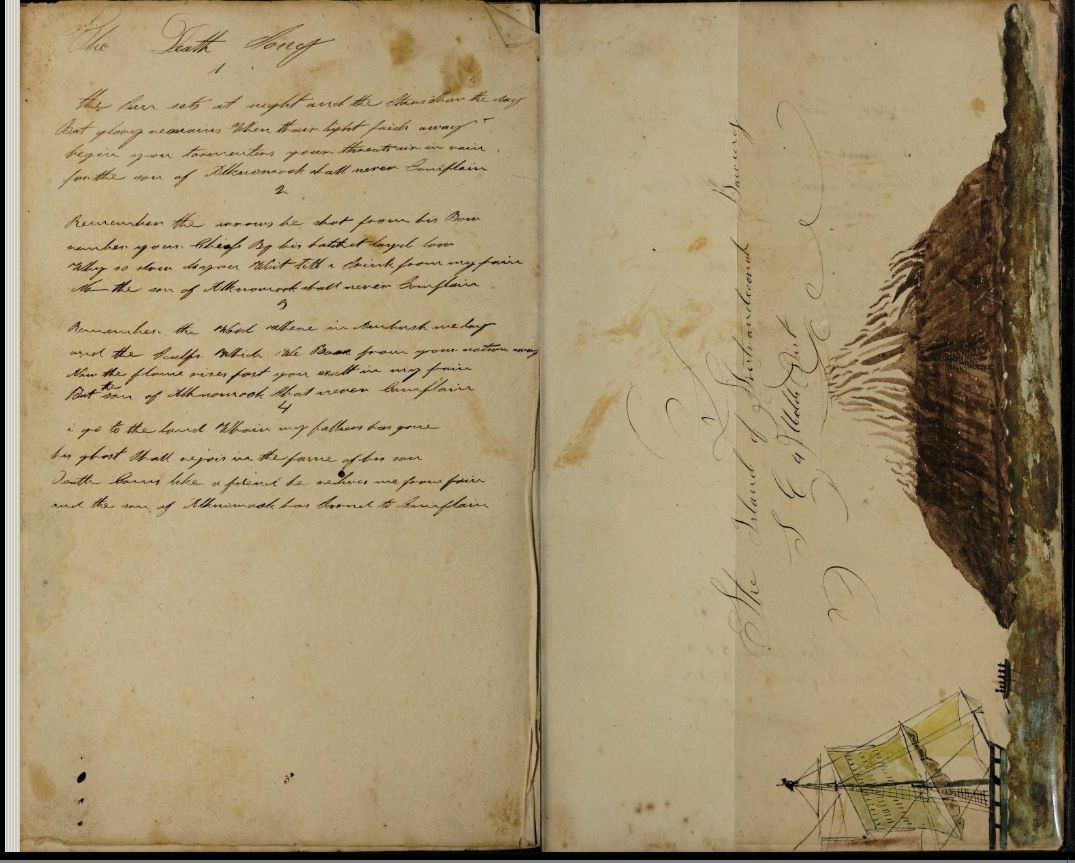 The Death Song
1
the Sun sets at night and the Stars shun the day
But glory remains When thair light faids away
begin you tormentors your threats air in vain
for the son of Alknomook shall never Complain
2
Remember the arrows he shot from his Bow
rember your Chiefs By his hatchet layd low
Why so slow do you Wait till i Srink from my pain
No the son of Alknomook shall never Complain
3
Remember the Wood Where in Ambush we lay
and the Scalps Which We Bore from your nation away
Now the flame rises fast you exelt in my pain
But the son of Alknomook shal never Complain
4
i go to the land Whair my fathers has gone
his ghost Shall rejois in the fame of his son
Death Coms like a friend he relives me from pain
and the son of Alknomook has to Complain
The Island of Bearing
S E Dist